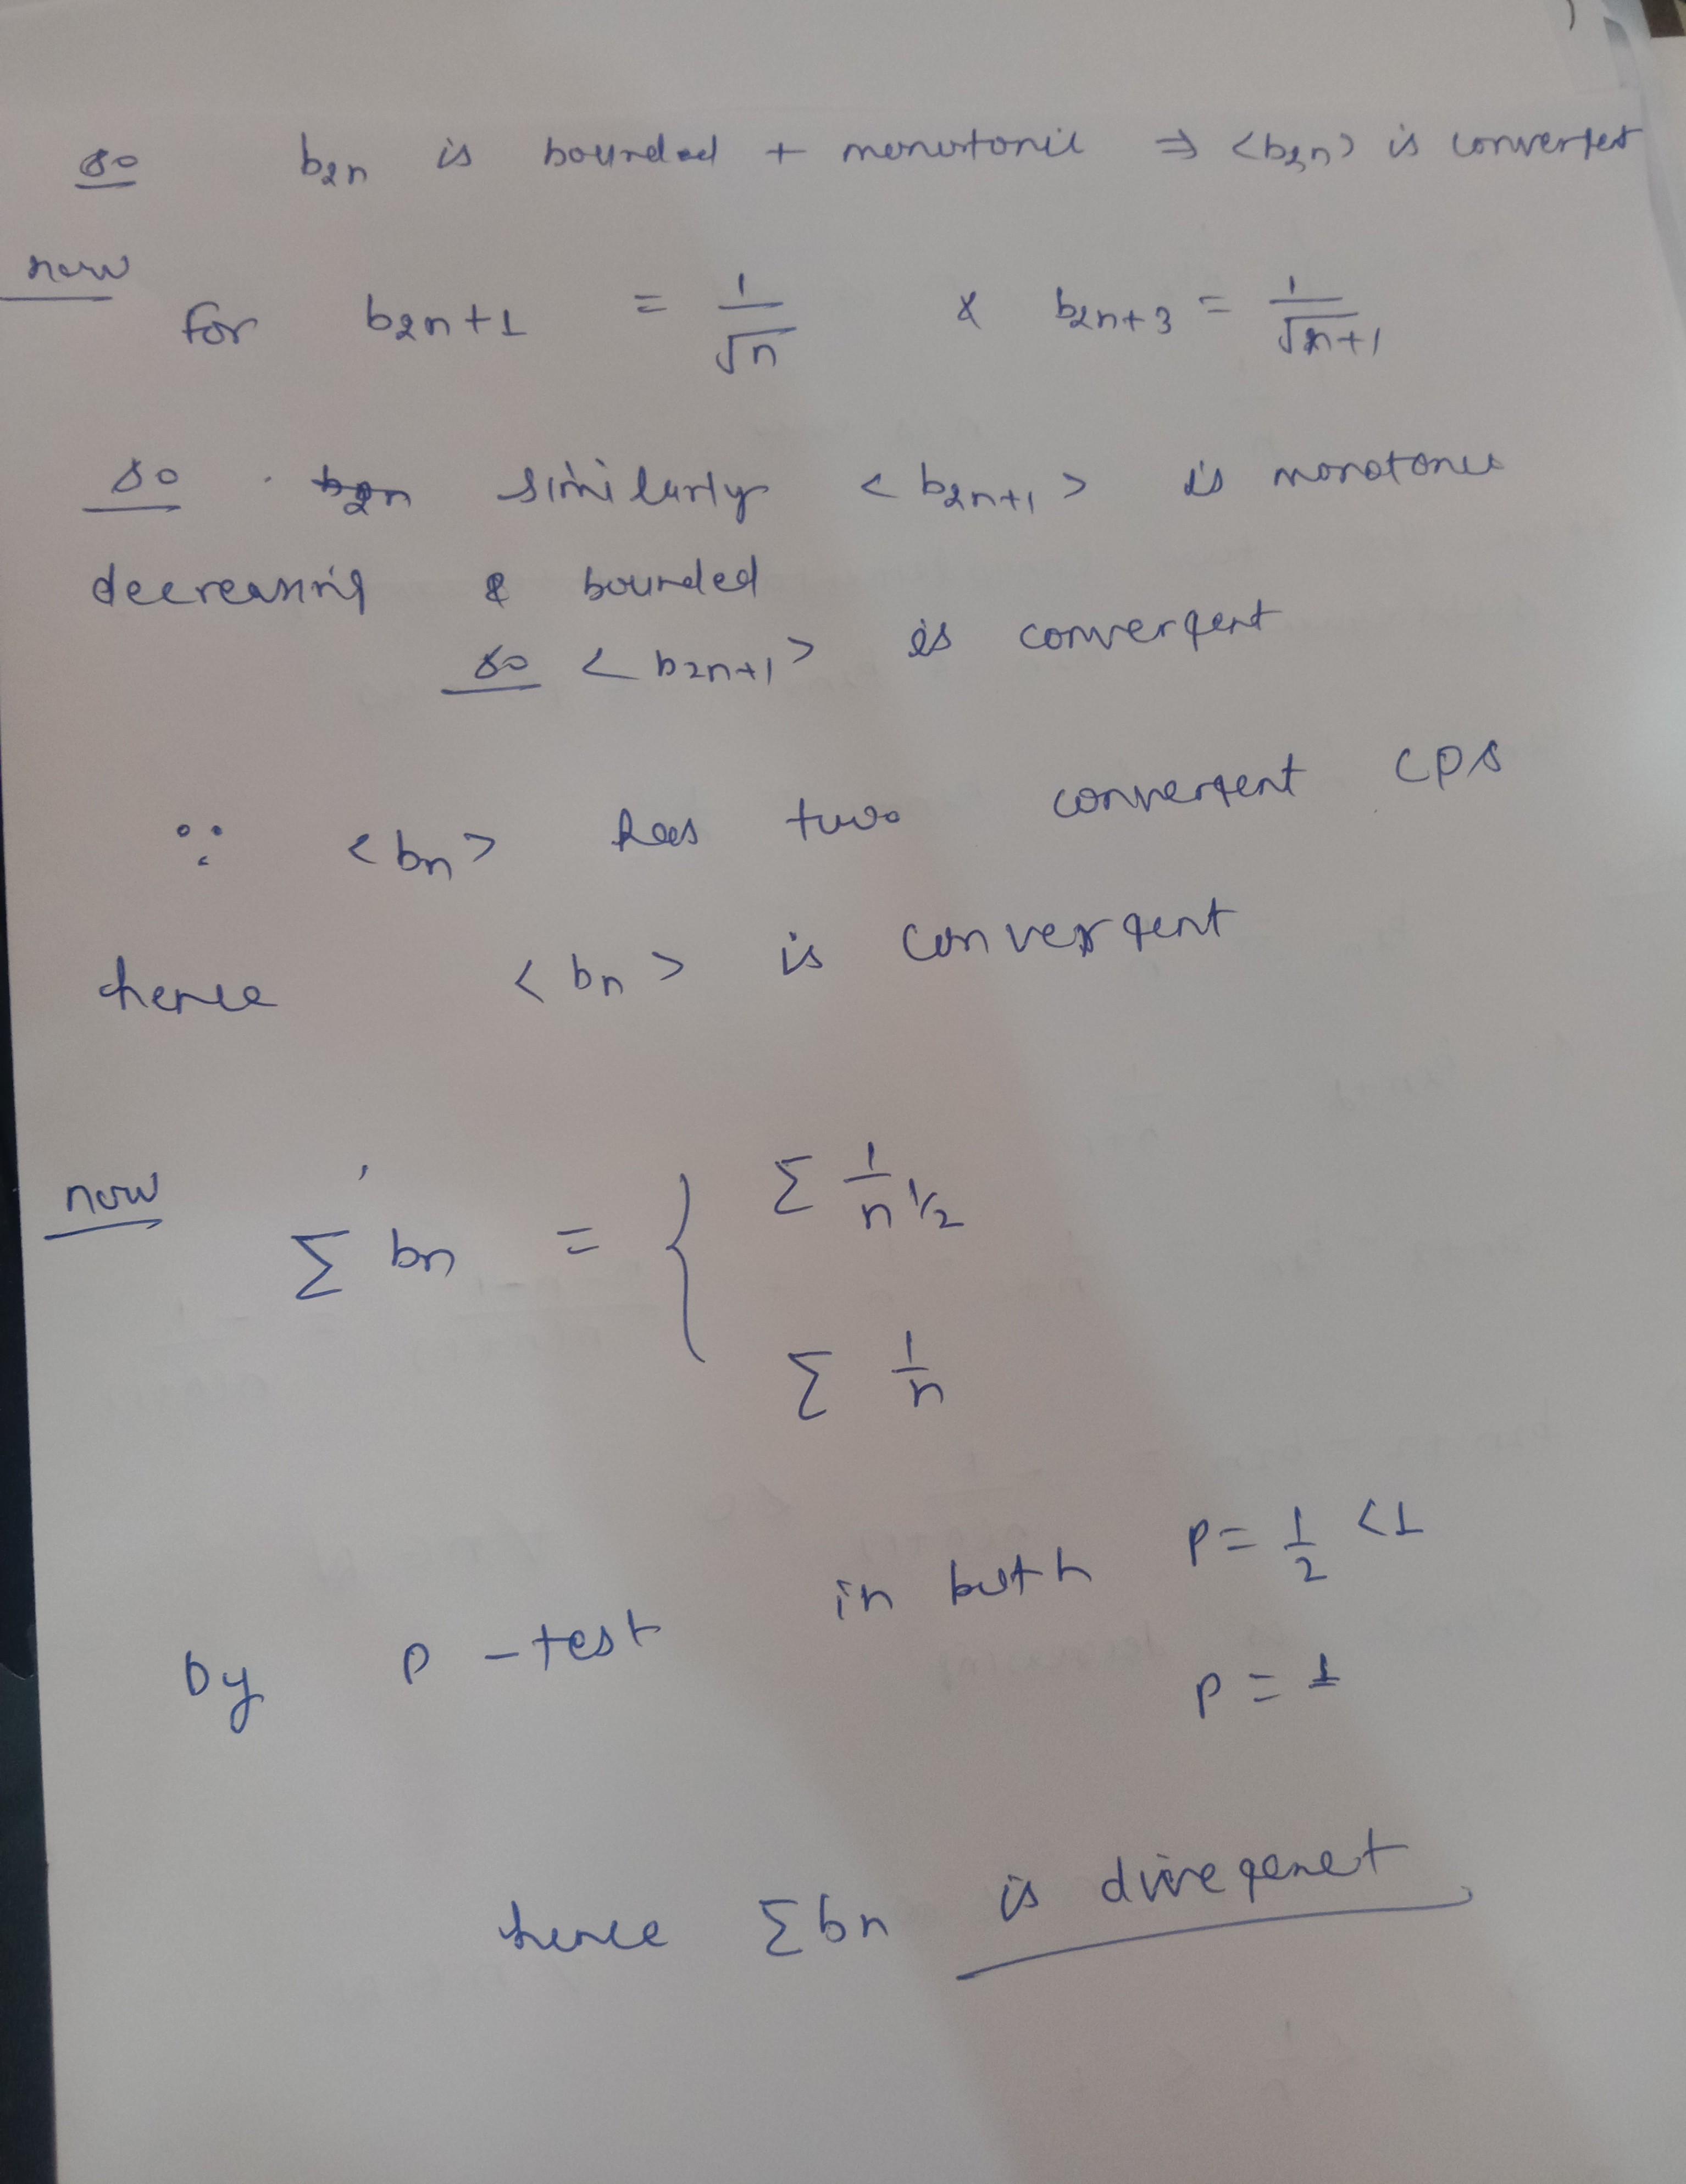 so b2n is bounded + monotonic ⇒ <b2n> is convergent
now
for b2n+1 = 1/√n & b2n+3 = 1/√n+1
so similarly <b2n+1> is monotonic
decreasing & bounded
so <b2n+1> is convergent
∵ <bn> has two convergent CPS
hence <bn> is convergent
now Σ bn = { Σ 1/n^1/2
Σ 1/n
by p-test in both p = 1/2 < 1
p = 1
hence Σbn is divergenet